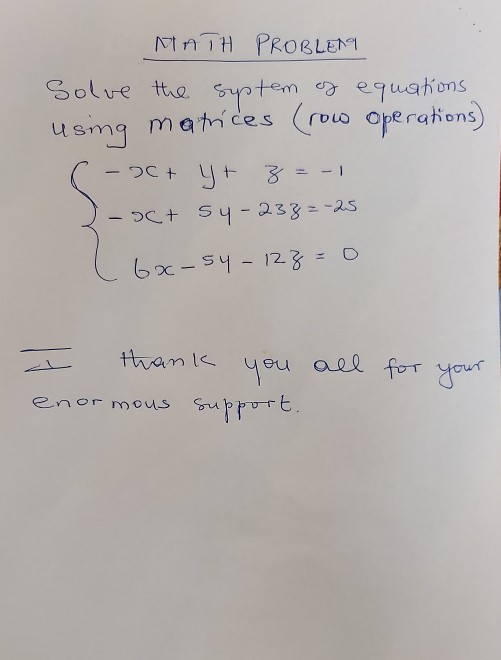 MATH PROBLEM
Solve the system of equations
using matrices (row operations)
-x + y + z = -1
-x + 5y - 23z = -25
6x - 5y - 12z = 0
I thank you all for your
enormous support.